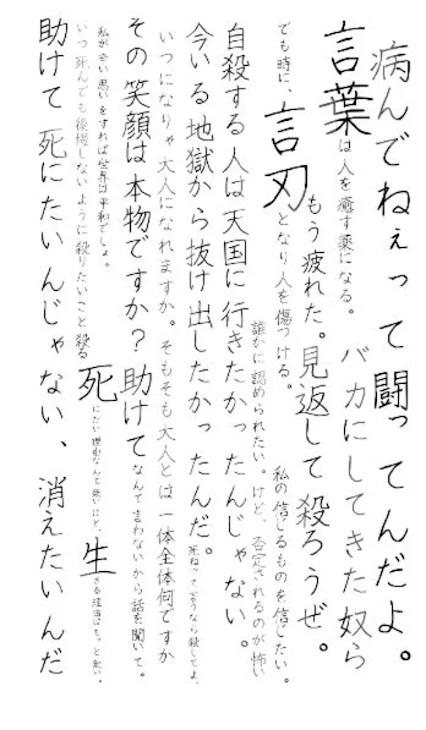 病んでねぇって闘ってんだよ。
バカにしてきた奴ら
言葉は人を癒す薬になる。
もう疲れた。見返して殺ろうぜ。
でも時に、言刃となり人を傷つける。
私の信じるものを信じたい。
誰かに認められたい。けど、否定されるのが怖い
自殺する人は天国に行きたかったんじゃない。
今いる地獄から抜け出したかったんだ。死ねって言うなら殺してよ。
いつになりゃ大人になれますか。そもそも大人とは一体全体何ですか
その笑顔は本物ですか？助けてなんて言わないから話を聞いて。
私が辛い思いをすれば世界は平和でしょ。
いつ死んでも後悔しないように殺りたいこと殺る
死にたい理由なんて無いけど、生きる理由はもっと無い。
助けて 死にたいんじゃない、消えたいんだ